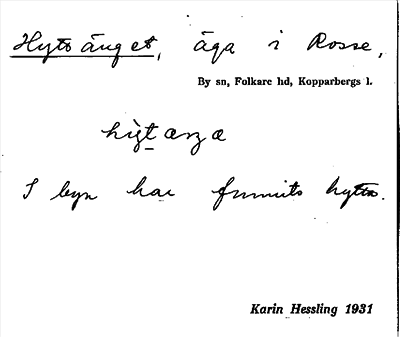 Hyttänget, äga i Rosse,
By sn, Folkare hd, Kopparbergs l.
I byn har funnits hytta.
Karin Hessling 1931